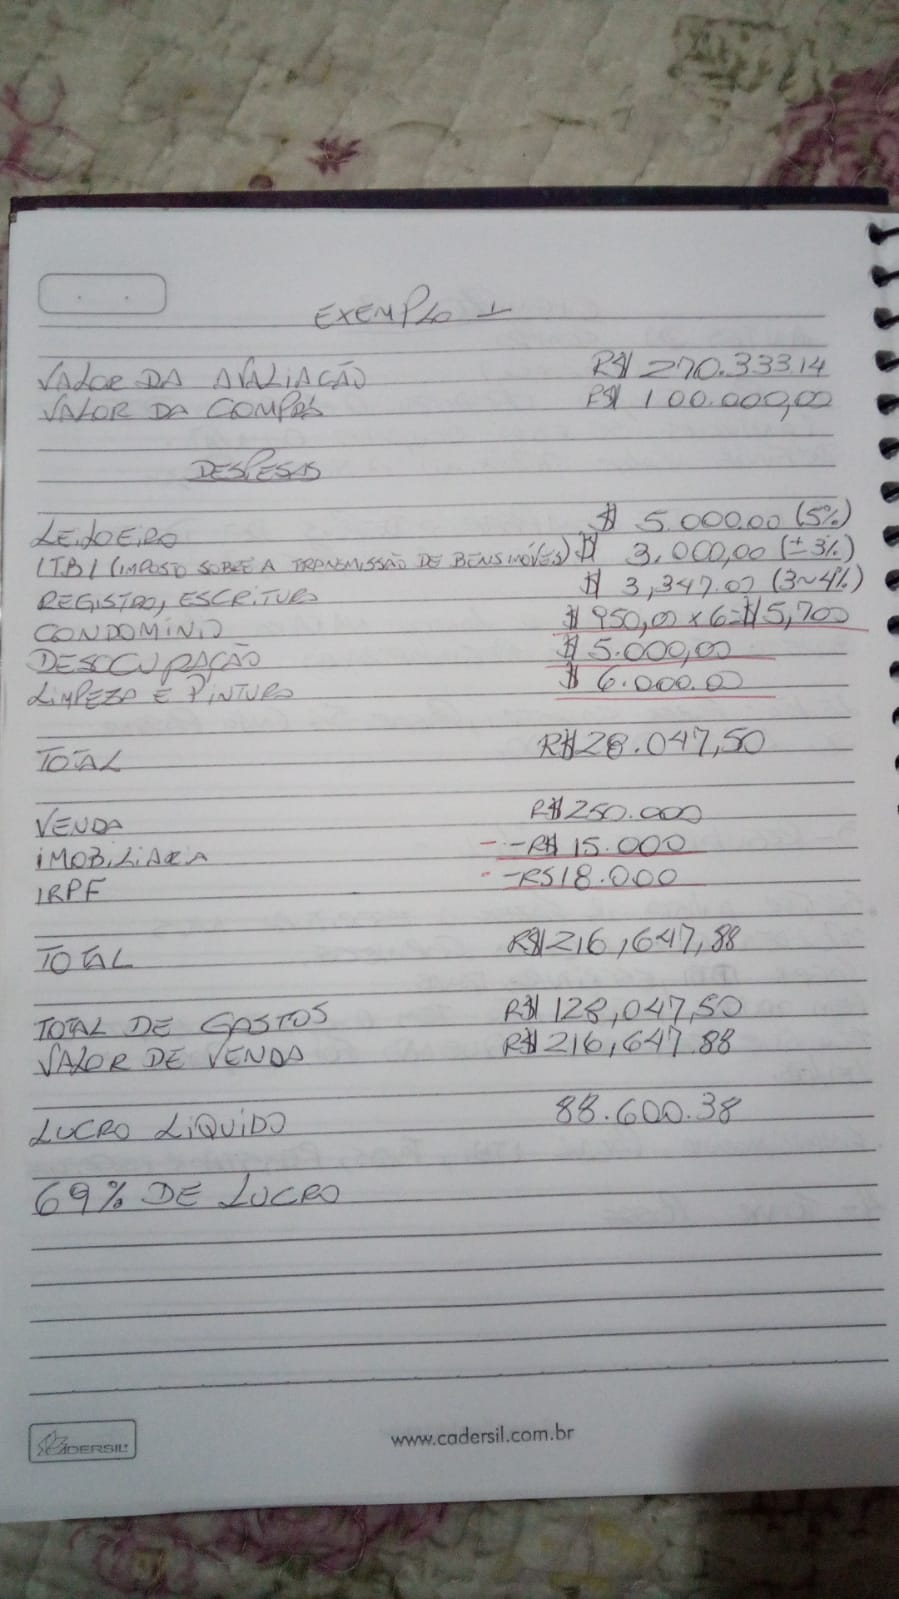 EXEMPLO 1
VALOR DA AVALIAÇÃO R$ 270.333.14
VALOR DA COMPRA R$ 100.000,00
DESPESAS
LEILOEIRO $ 5.000.00 (5%)
ITBI (IMPOSTO SOBRE A TRANSMISSÃO DE BENS IMÓVEIS) $ 3,000,00 (± 3%)
REGISTRO, ESCRITURA $ 3,347.07 (3~4%)
CONDOMÍNIO $ 950,00 x 6 = $ 5,700
DESOCUPAÇÃO $ 5.000,00
LIMPEZA E PINTURA $ 6.000.00
TOTAL R$ 28.047,50
VENDA R$ 250.000
IMOBILIARIA - -R$ 15.000
IRPF - -R$ 18.000
TOTAL R$ 216,647,88
TOTAL DE GASTOS R$ 128,047,50
VALOR DE VENDA R$ 216,647.88
LUCRO LÍQUIDO 88.600.38
69% DE LUCRO
CADERSIL
www.cadersil.com.br